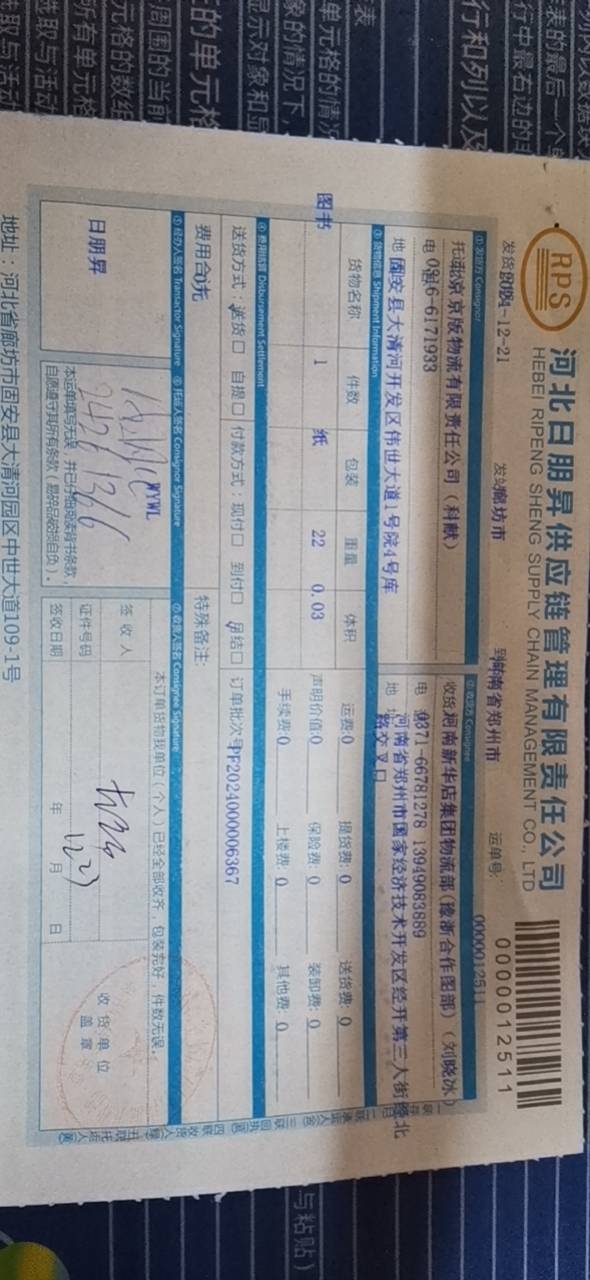 RPS
河北日朋昇供应链管理有限责任公司
HEBEI RIPENG SHENG SUPPLY CHAIN MANAGEMENT CO., LTD
0000012511
发货 2024-12-21
发站 廊坊市
到 河南省郑州市
运单号: 0000012511
①发货方 Consignor
②收货方 Consignee
托 北京京版物流有限责任公司 (科献)
收货 河南新华店集团物流部(豫浙合作图部) (刘晓冰)
电 0316-6171933
电 0371-66781278 13949083889
地 固安县大清河开发区伟世大道1号院4号库
地址 河南省郑州市国家经济技术开发区经开第三大街 北
路交叉口
③货物信息 Shipment Information
货物名称 件数 包装 重量 体积
图书 1 纸 22 0.03
运费:0 提货费: 0 送货费: 0
声明价值:0 保险费: 0 装卸费: 0
手续费:0 上楼费: 0 其他费: 0
④费用结算 Disbursement Settlement
送货方式: 送货□ 自提□ 付款方式: 现付□ 到付□ 月结□ 订单批次号 PF2024000006367
费用合 0元
特殊备注:
⑤经办人签名 Transactor Signature
⑥托运人签名 Consignor Signature
⑦收货人签名 Consignee Signature
日朋昇
WYWL
本运单填写无误,并已仔细阅读背书条款,
自愿遵守其所有条款(易碎品破损自负)。
本订单货物我单位(个人)已经全部收齐,包装完好,件数无误。
签收人
证件号码
签收日期 年 12月23日
收货单位
盖章
地址:河北省廊坊市固安县大清河园区中世大道109-1号